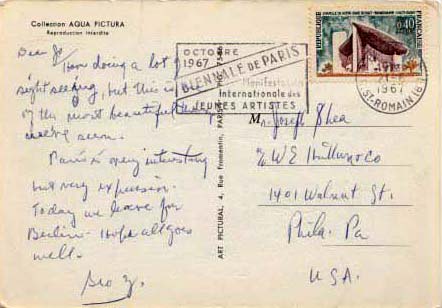 Collection AQUA PICTURA
Reproduction Interdite
Dear Jo
Am doing a lot of
sight seeing, but this is
of the most beautiful
we've seen.
Paris is very interesting
but very expensive.
Today we leave for
Berlin - Hope all goes
well.
Geo
ART PICTURAL, 4, Rue Fromentin, PARIS
OCTOBRE
1967
BIENNALE de PARIS
Manifestation
Internationale des
JEUNES ARTISTES
REPUBLIQUE
FRANÇAISE
0,40
1967
ST-ROMAIN
Mr. Joseph Shea
1401 Walnut St.
Phila. Pa
U.S.A.